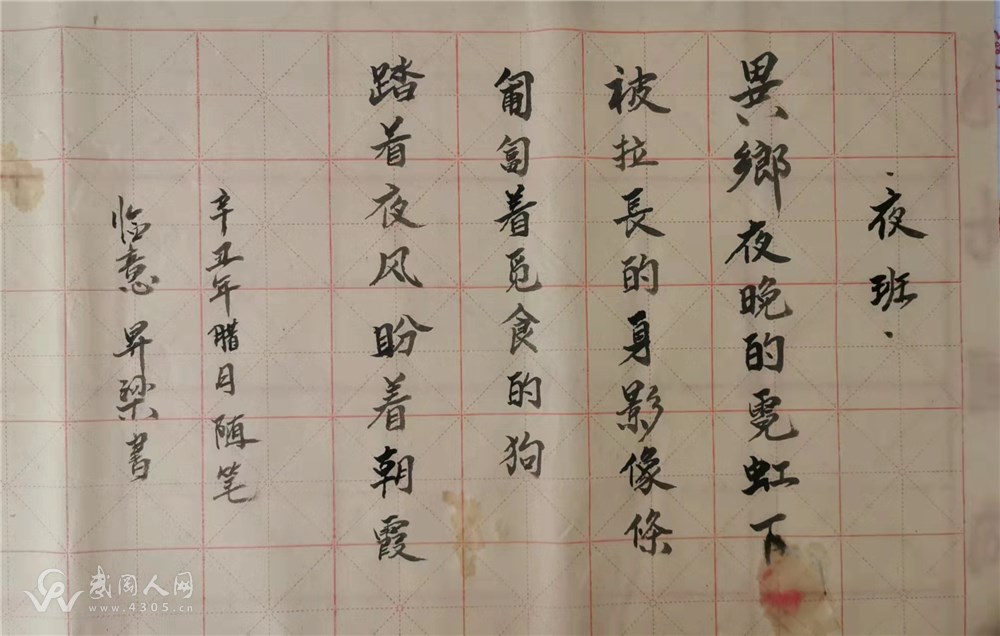 ·夜班·
異鄉夜晚的霓虹下
被拉長的身影像條
匍匐着覓食的狗
踏着夜风盼着朝霞
辛丑年腊月随笔
临意 昇梁书
武冈人网
www.4305.cn